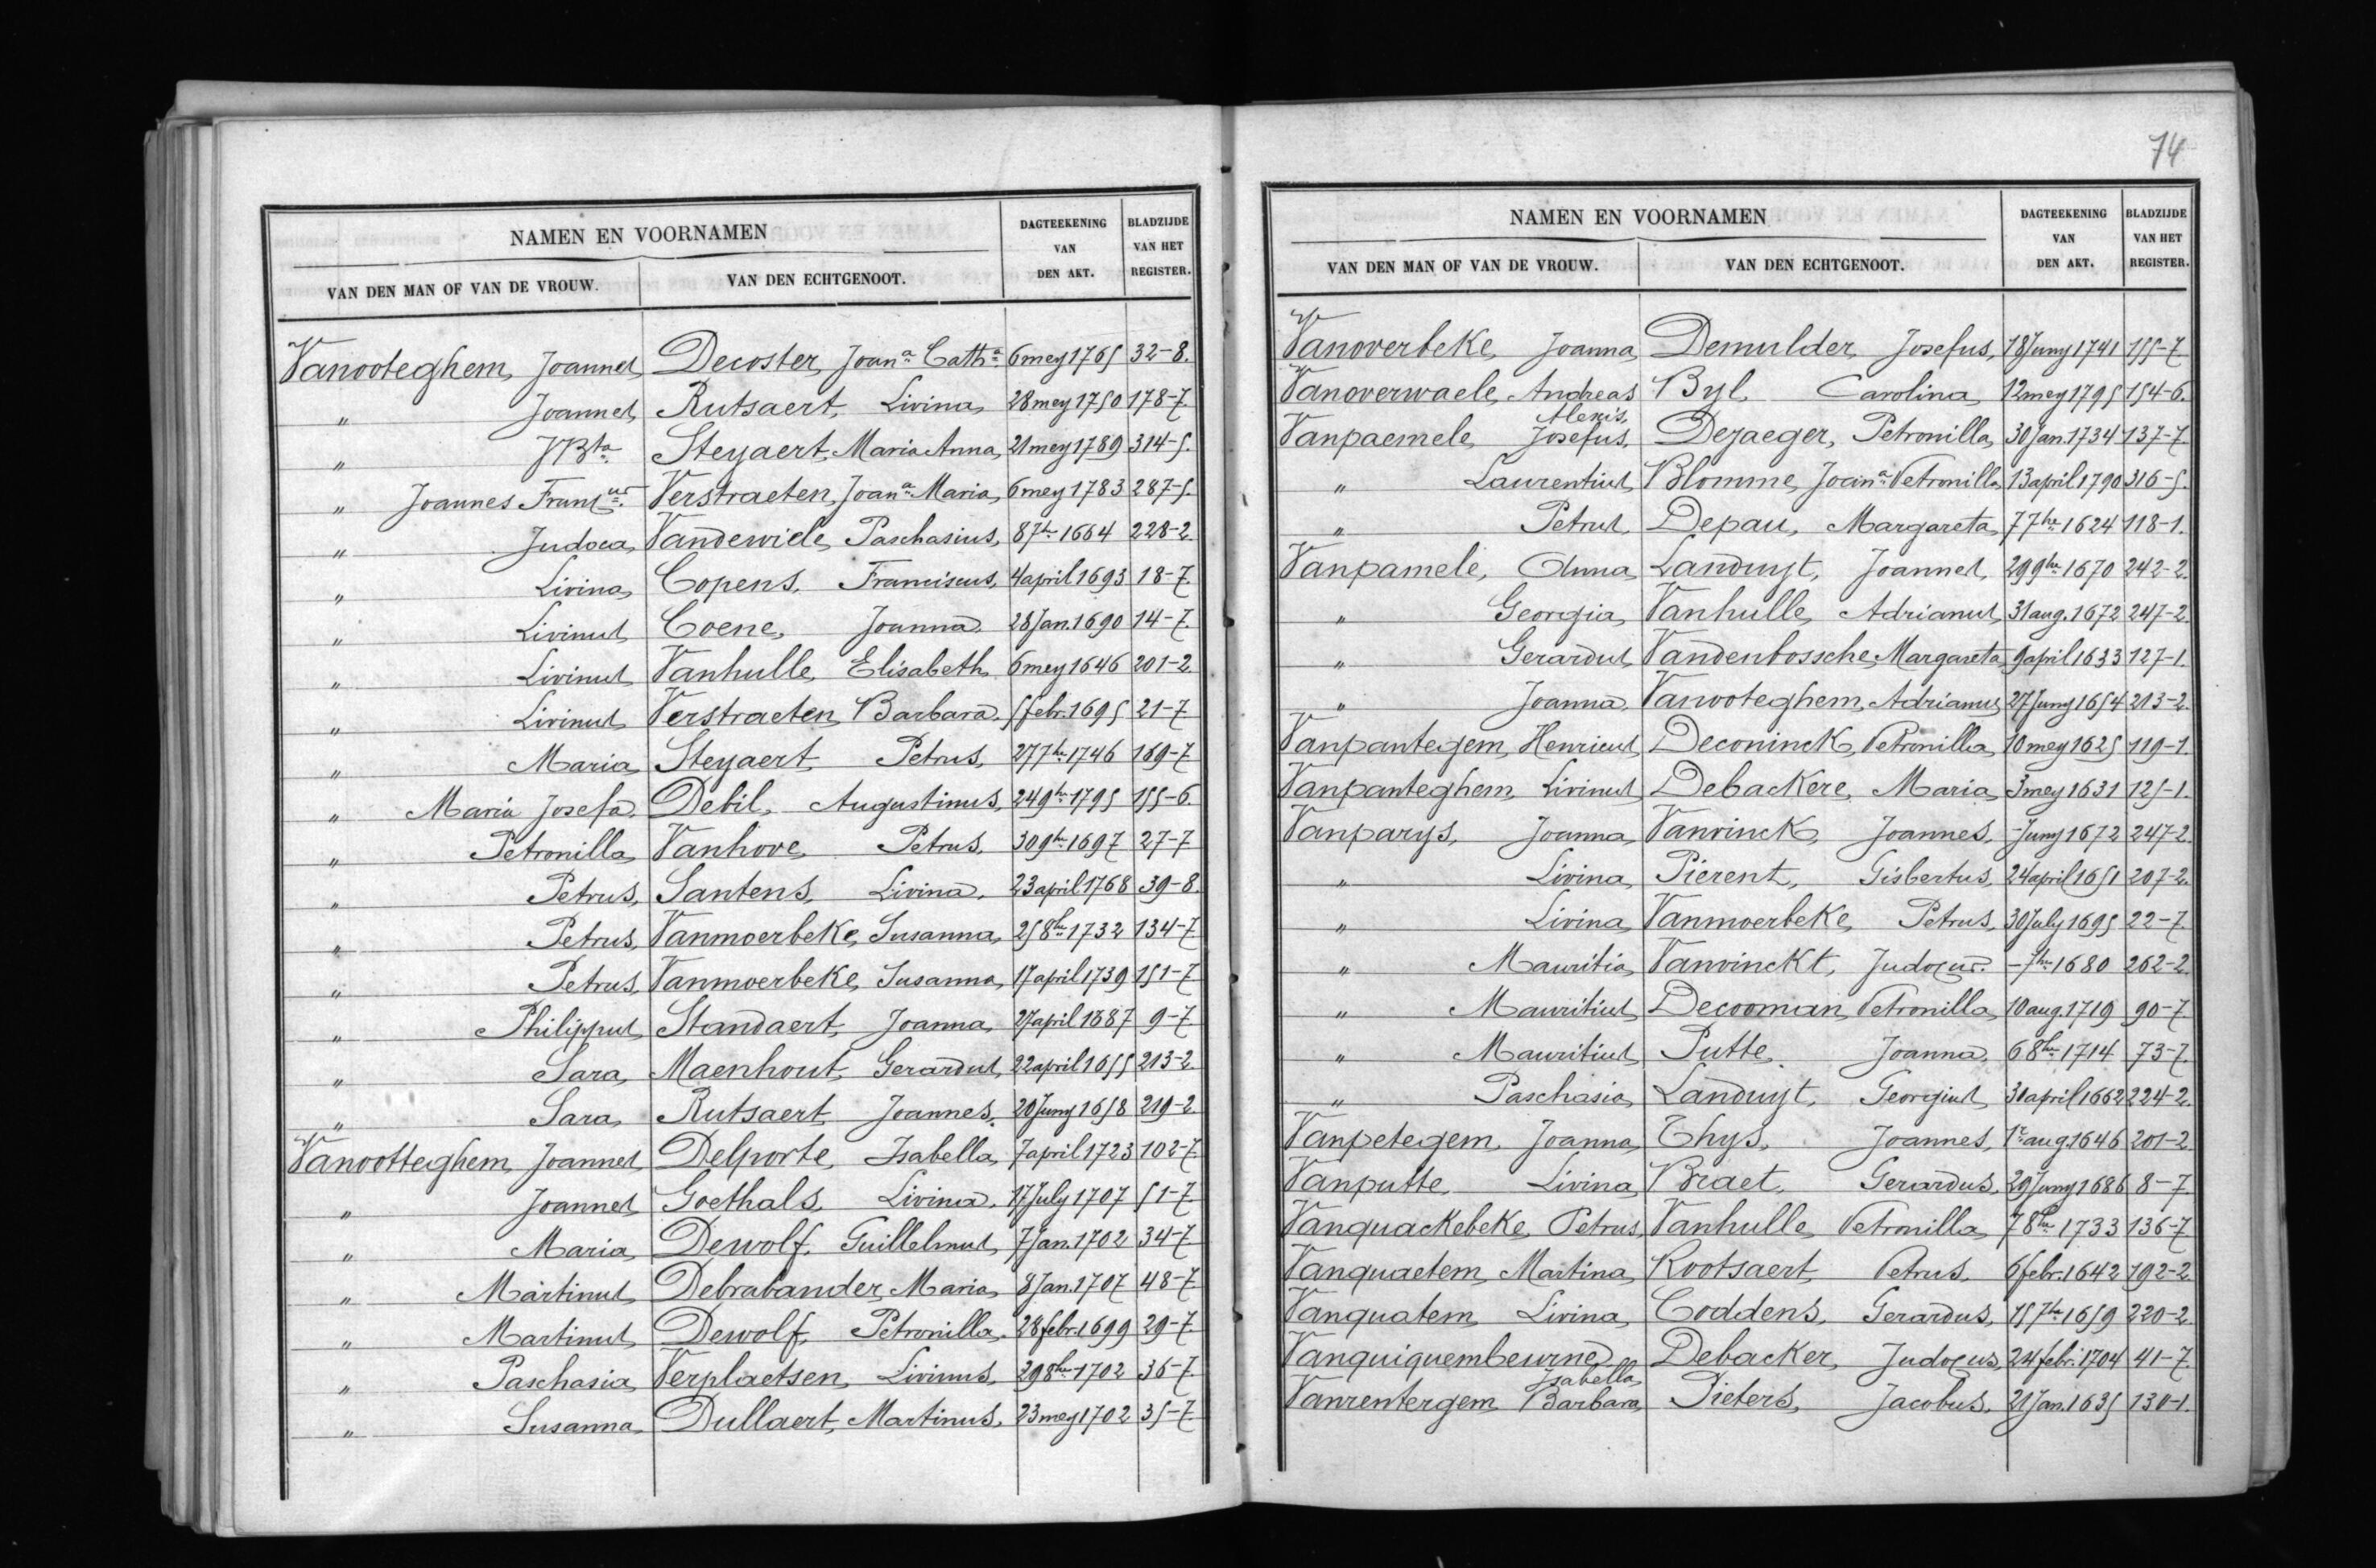 NAMEN EN VOORNAMEN DAGTEEKENING VAN DEN AKT. BLADZIJDE VAN HET REGISTER.
VAN DEN MAN OF VAN DE VROUW. VAN DEN ECHTGENOOT.
Vanooteghem, Joannes, Decoster, Joanª Cathª 6 mey 1765 32-8.
" Joannes, Rutsaert, Livina, 28 mey 1750 178-7.
" J Bta Steyaert, Maria Anna, 21 mey 1789 314-5.
" Joannes Françus. Verstraeten, Joanª Maria, 6 mey 1783 287-5.
" Judoca, Vandewiele, Paschasius, 8 7br 1664 228-2.
" Livina, Copens, Franciscus, 4 april 1693 18-7.
" Livinus, Coene, Joanna. 28 Jan. 1690 14-7.
" Livinus, Vanhulle, Elisabeth, 6 mey 1646 201-2.
" Livinus, Verstraeten, Barbara. 5 febr. 1695 21-7.
" Maria, Steyaert, Petrus, 27 7br 1746 169-7.
" Maria Josefa. Debil, Augustinus, 24 9br 1795 155-6.
" Petronilla, Vanhove, Petrus, 30 9br 1697 27-7
" Petrus, Santens, Livina, 23 april 1768 39-8.
" Petrus, Vanmoerbeke, Susanna, 25 8br 1732 134-7.
" Petrus, Vanmoerbeke, Susanna, 17 april 1739 151-7.
" Philippus, Standaert, Joanna, 27 april 1687 9-7.
" Sara, Maenhout, Gerardus, 22 april 1655 213-2.
" Sara, Rutsaert, Joannes, 20 Juny 1658 219-2.
Vanootteghem, Joannes, Delporte, Isabella, 7 april 1723 102-7.
" Joannes, Goethals, Livina, 17 July 1707 51-7.
" Maria, Dewolf, Guillelmus, 7 Jan. 1702 34-7.
" Martinus, Debrabander, Maria, 8 Jan. 1707 48-7.
" Martinus, Dewolf, Petronilla, 28 febr. 1699 29-7.
" Paschasia, Verplaetsen, Livinus, 29 8br 1702 36-7.
" Susanna, Dullaert, Martinus, 23 mey 1702 35-7.
74
NAMEN EN VOORNAMEN DAGTEEKENING VAN DEN AKT. BLADZIJDE VAN HET REGISTER.
VAN DEN MAN OF VAN DE VROUW. VAN DEN ECHTGENOOT.
Vanoverbeke, Joanna, Demulder, Josefus, 18 Juny 1741 155-7.
Vanoverwaele, Andreas Byl, Carolina, 12 mey 1795 154-6.
Alexis,
Vanpaemele, Josefus, Dejaeger, Petronilla, 30 Jan. 1734 137-7.
" Laurentius, Blomme, Joanª Petronilla, 13 april 1790 316-5.
" Petrus, Depau, Margareta, 7 7br 1624 118-1.
Vanpamele, Anna, Landuyt, Joannes, 29 9br 1670 242-2.
" Georgia, Vanhulle, Adrianus, 31 aug. 1672 247-2.
" Gerardus, Vandenbossche, Margareta, 9 april 1633 127-1.
" Joanna, Vanooteghem, Adrianus, 27 Juny 1654 213-2.
Vanpantegem, Henricus, Deconinck, Petronilla, 10 mey 1625 119-1.
Vanpanteghem, Livinus, Debackere, Maria, 3 mey 1631 125-1.
Vanparys, Joanna, Vanvinck, Joannes, - Juny 1672 247-2.
" Livina, Pierent, Gisbertus, 24 april 1651 207-2.
" Livina, Vanmoerbeke, Petrus, 30 July 1695 22-7.
" Mauritia, Vanvinckt, Judoçus. - 7br 1680 262-2.
" Mauritius, Decooman, Petronilla, 10 aug. 1719 90-7.
" Mauritius, Putte, Joanna. 6 8br 1714 73-7.
" Paschasia, Landuyt, Georgius, 30 april 1662 224-2.
Vanpetegem, Joanna, Thys, Joannes, 1e aug. 1646 201-2.
Vanputte, Livina, Braet, Gerardus, 29 Juny 1686 8-7.
Vanquackebeke, Petrus, Vanhulle, Petronilla, 7 8br 1733 136-7.
Vanquaetem, Martina, Rootsaert, Petrus, 6 febr. 1642 192-2.
Vanquatem, Livina, Coddens, Gerardus, 15 7br 1659 220-2.
Vanquiquembeurne, Debacker, Judoçus, 24 febr. 1704 41-7.
Isabella,
Vanrentergem, Barbara, Pieters, Jacobus, 21 Jan. 1635 130-1.